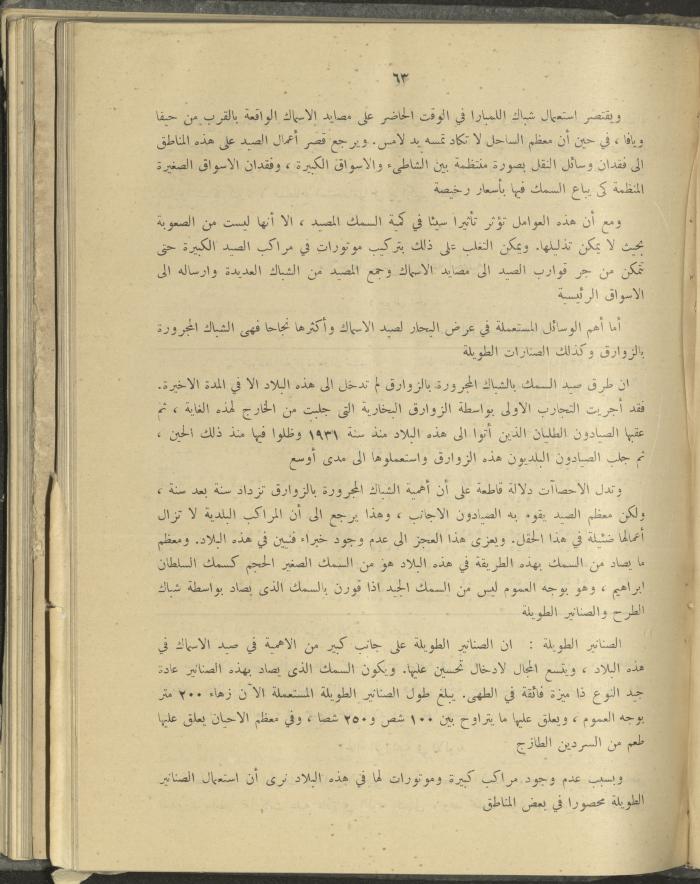 ٦٣
ويقتصر استعمال شباك اللمبارا في الوقت الحاضر على مصايد الاسماك الواقعة بالقرب من حيفا
ويافا ، في حين أن معظم الساحل لا تكاد تمسه يد لامس. ويرجع قصر أعمال الصيد على هذه المناطق
الى فقدان وسائل النقل بصورة منتظمة بين الشاطىء والاسواق الكبيرة ، وفقدان الاسواق الصغيرة
المنظمة كى يباع السمك فيها بأسعار رخيصة
ومع أن هذه العوامل تؤثر تأثيرا سيئا في كمية السمك المصيد ، الا أنها ليست من الصعوبة
بحيث لا يمكن تذليلها. ويمكن التغلب على ذلك بتركيب موتورات في مراكب الصيد الكبيرة حتى
تتمكن من جر قوارب الصيد الى مصايد الاسماك وجمع المصيد من الشباك العديدة وارساله الى
الاسواق الرئيسية
أما أهم الوسائل المستعملة في عرض البحار لصيد الاسماك وأكثرها نجاحا فهى الشباك المجرورة
بالزوارق وكذلك الصنارات الطويلة
ان طرق صيد السمك بالشباك المجرورة بالزوارق لم تدخل الى هذه البلاد الا في المدة الاخيرة.
فقد أجريت التجارب الاولى بواسطة الزوارق البخارية التى جلبت من الخارج لهذه الغاية ، ثم
عقبها الصيادون الطليان الذين أتوا الى هذه البلاد منذ سنة ١٩٣١ وظلوا فيها منذ ذلك الحين ،
ثم جلب الصيادون البلديون هذه الزوارق واستعملوها الى مدى أوسع
وتدل الاحصاآت دلالة قاطعة على أن أهمية الشباك المجرورة بالزوارق تزداد سنة بعد سنة ،
ولكن معظم الصيد يقوم به الصيادون الاجانب ، وهذا يرجع الى أن المراكب البلدية لا تزال
أعمالها ضئيلة في هذا الحقل. ويعزى هذا العجز الى عدم وجود خبراء فنيين في هذه البلاد. ومعظم
ما يصاد من السمك بهذه الطريقة في هذه البلاد هو من السمك الصغير الحجم كسمك السلطان
ابراهيم ، وهو بوجه العموم ليس من السمك الجيد اذا قورن بالسمك الذى يصاد بواسطة شباك
الطرح والصنانير الطويلة
الصنانير الطويلة : ان الصنانير الطويلة على جانب كبير من الاهمية في صيد الاسماك في
هذه البلاد ، ويتسع المجال لادخال تحسين عليها. ويكون السمك الذى يصاد بهذه الصنانير عادة
جيد النوع ذا ميزة فائقة في الطهى. يبلغ طول الصنانير الطويلة المستعملة الآن زهاء ٢٠٠ متر
بوجه العموم ، ويعلق عليها ما يتراوح بين ١٠٠ شص و٢٥٠ شصا ، وفي معظم الاحيان يعلق عليها
طعم من السردين الطازج
وبسبب عدم وجود مراكب كبيرة وموتورات لها في هذه البلاد نرى أن استعمال الصنانير
الطويلة محصورا في بعض المناطق